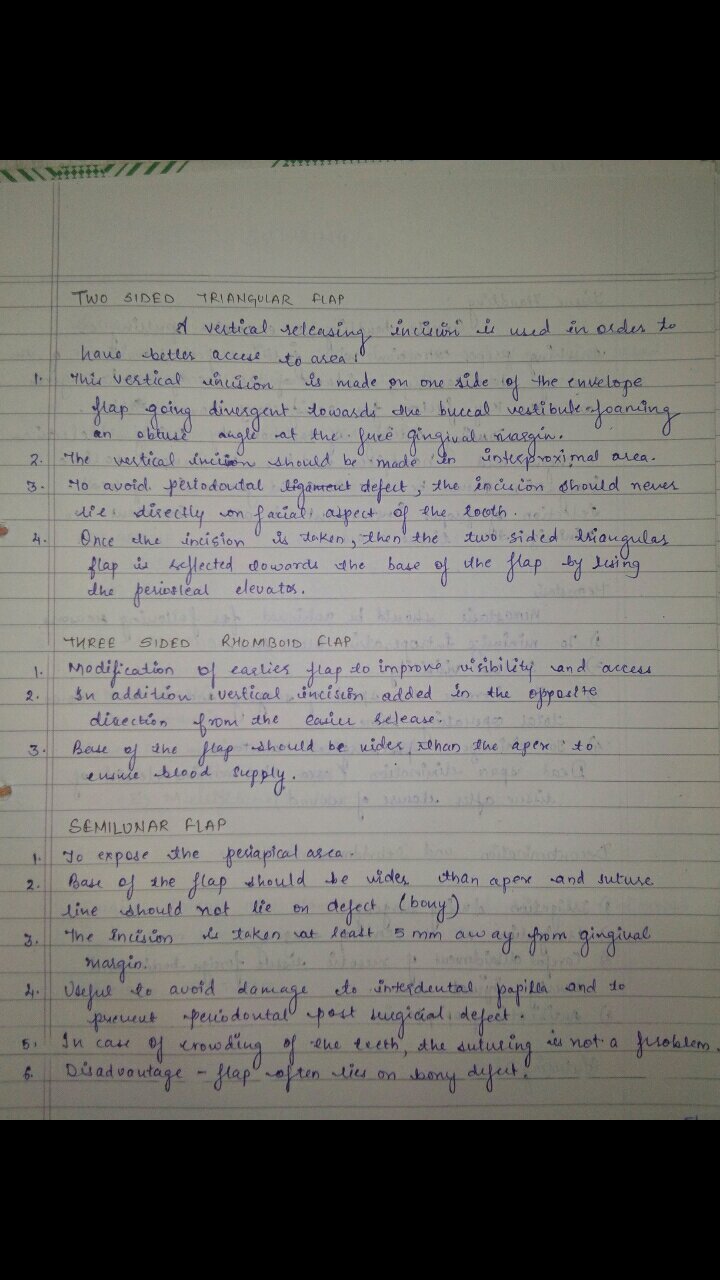 TWO SIDED TRIANGULAR FLAP
A vertical releasing incision is used in order to
have better access to area.
1. This vertical incision is made on one side of the envelope
flap going divergent towards the buccal vestibule foaming
an obtuse angle at the free gingival margin.
2. The vertical incision should be made in interproximal area.
3. To avoid periodontal ligament defect, the incision should never
lie directly on facial aspect of the tooth.
4. Once the incision is taken, then the two sided triangular
flap is reflected towards the base of the flap by using
the periosteal elevator.
THREE SIDED RHOMBOID FLAP
1. Modification of earlier flap to improve visibility and access
2. In addition vertical incision added in the opposite
direction from the earlier release.
3. Base of the flap should be wider than the apex to
ensure blood supply.
SEMILUNAR FLAP
1. To expose the periapical area.
2. Base of the flap should be wider than apex and suture
line should not lie on defect (bony)
3. The incision is taken at least 5 mm away from gingival
margin.
4. Useful to avoid damage to interdental papilla and to
prevent periodontal post surgicial defect.
5. In case of crowding of the teeth, the suturing is not a problem.
6. Disadvantage - flap often lies on bony defect.